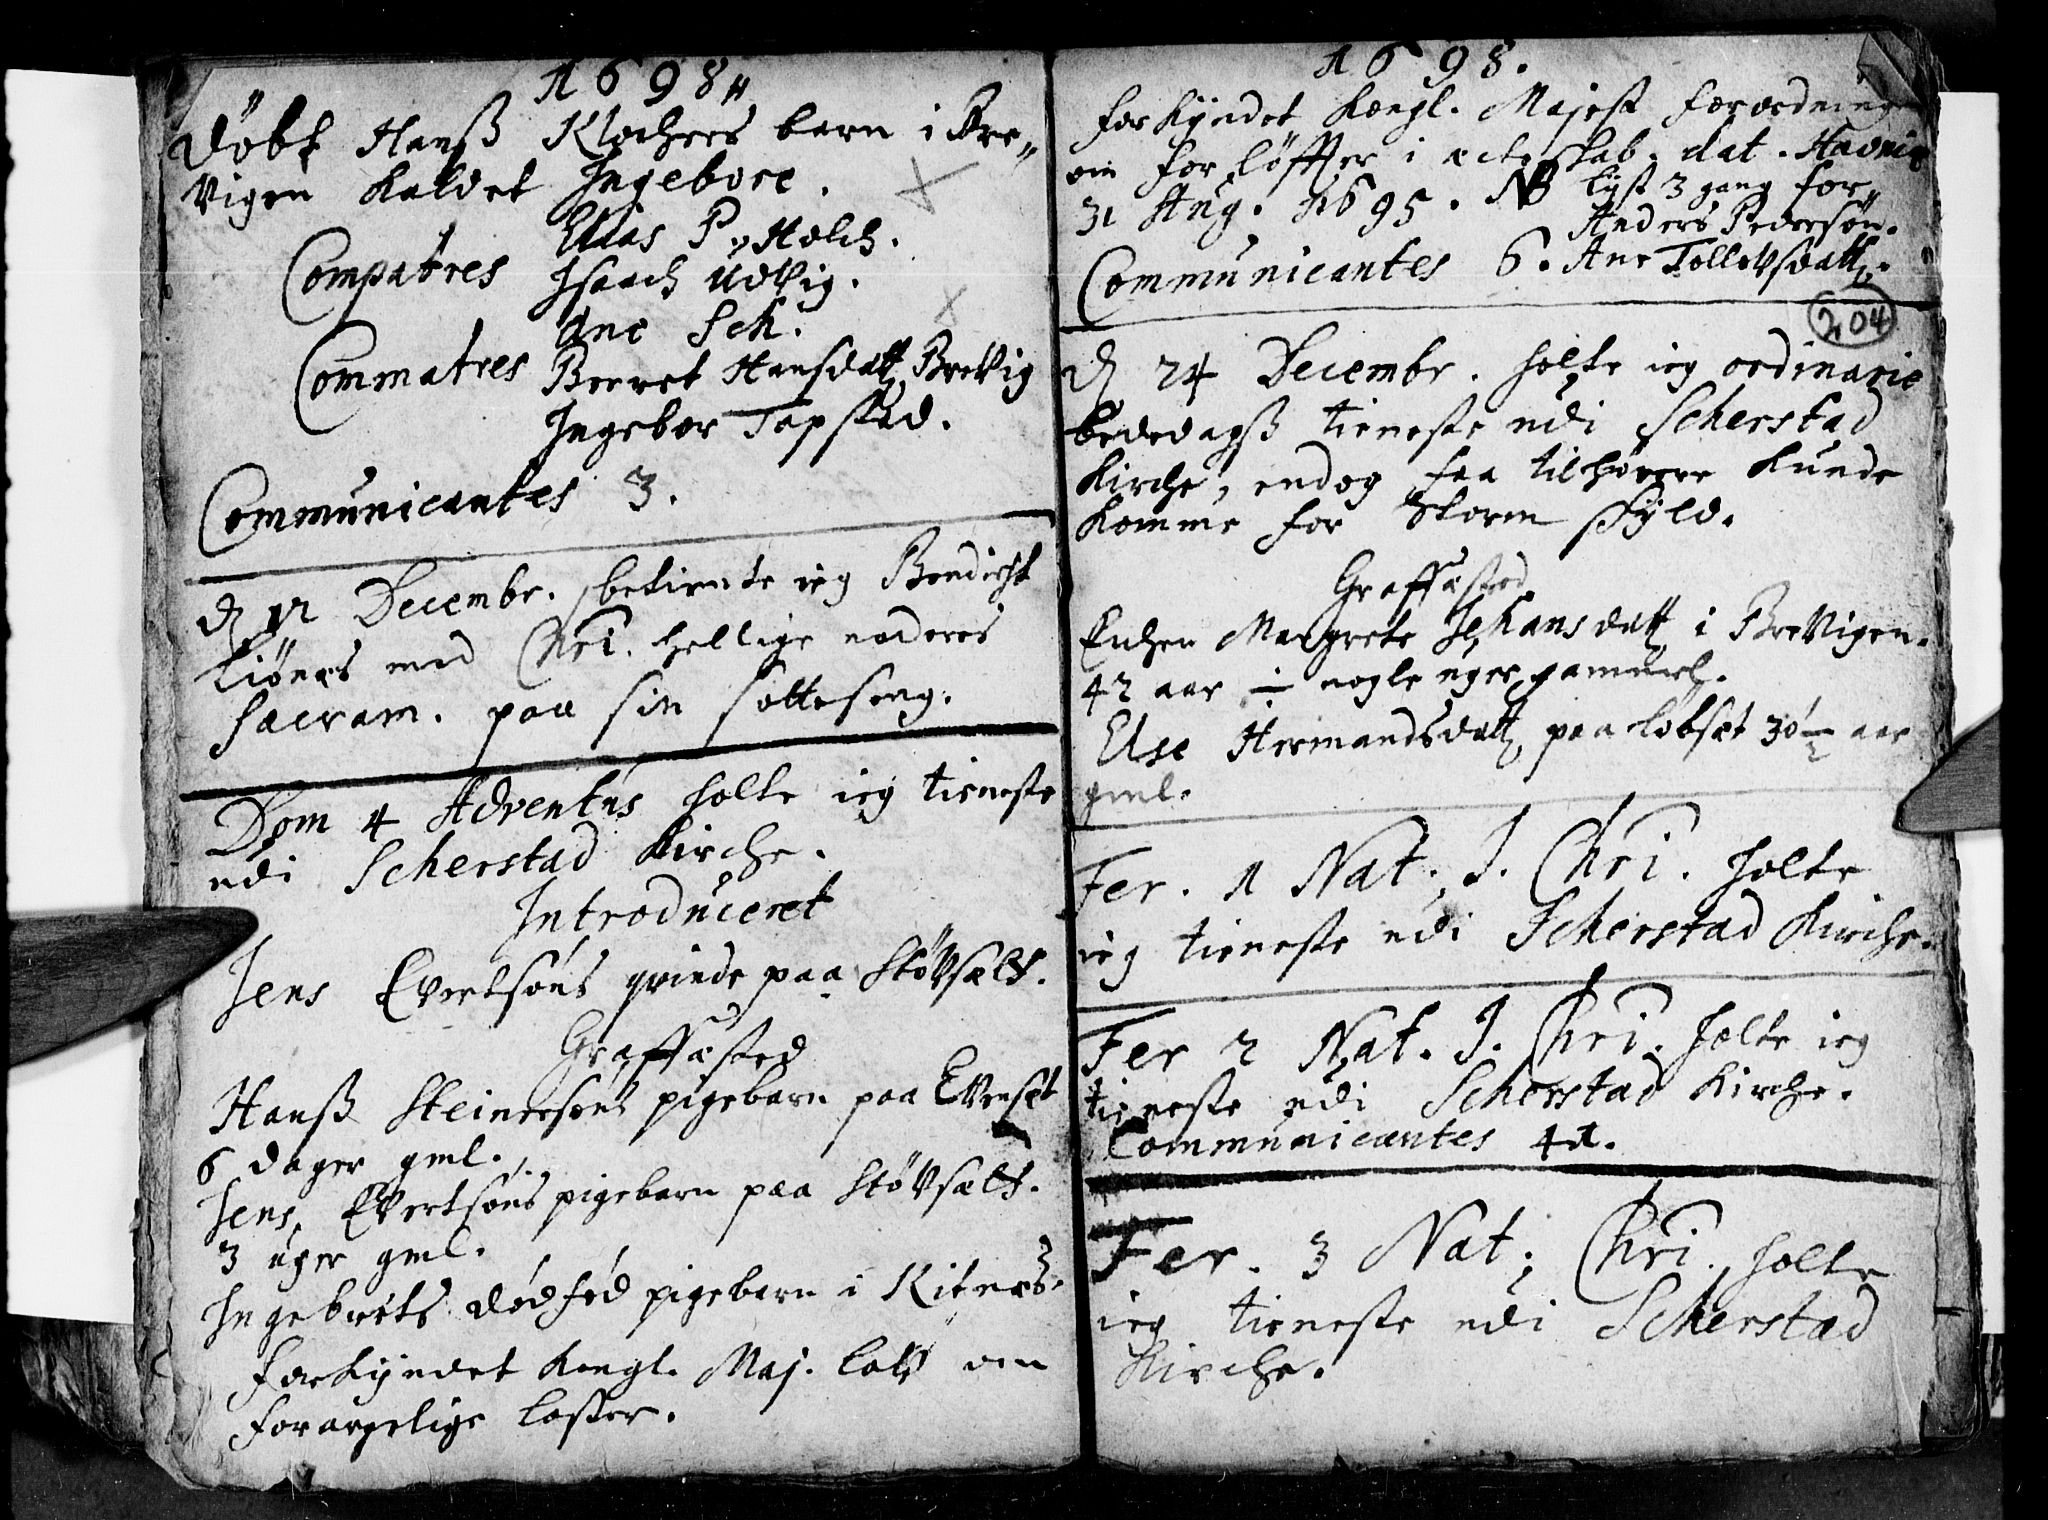 1698„
Døbt Hanß Klochers barn i Bre„
vigen kaldet Ingebore.
Elias P. Holch.
Compatres Isaach Udvig.
Ane Sch.
Commatres Berret Hansdatt Brevig
Ingebor Tapsted.
Communicantes 3.
D 12 Decembr. betiente ieg Bendicht
Kiønes med Chri. hellige naderes
Sacram. paa sin sotteseng.
Dom 4 Adventus holte ieg tieneste
udi Scherstad Kirche.
Introduceret
Jens Evertsøns qvinde paa Støvsælt.
Graffæsted
Hanß Steinersøns pigebarn paa Evenset
6 dager gml.
Jens Evertsøns pigebarn paa Støvsælt.
3 uger gml.
Ingebrets dødfød pigebarn i Kitnæs.
Forkyndet Kongl. Maj. lov om
forargelige laster.
1698.
Forkyndet Kongl. Majest forordning
om for løffter i ecteskab. dat. Havniæ
31 Aug. 1695. NB lyst 3 gang for
Anders Pedersøn.
Communicantes 6. Ane Tollevsdatt.
204
D 24 Decembr. holte ieg ordinarie
bededagß tieneste udi Scherstad
Kirche, endog faa tilhørere kunde
komme for Storm skyld.
Graffæsted
Enchen Margrete Johansdatt i Brevigen.
42 aar ÷ nogle uger gammel.
Else Hermandsdatt paa Løbset 30 1/2 aar
gml.
Fer. 1 Nat. J. Chri. holte
ieg tieneste udi Scherstad Kirche.
Fer 2 Nat. J. Chri. holte ieg
tieneste udi Scherstad Kirche.
Communicantes 41.
Fer. 3 Nat. Chri. holte
ieg tieneste udi Scherstad
Kirche.